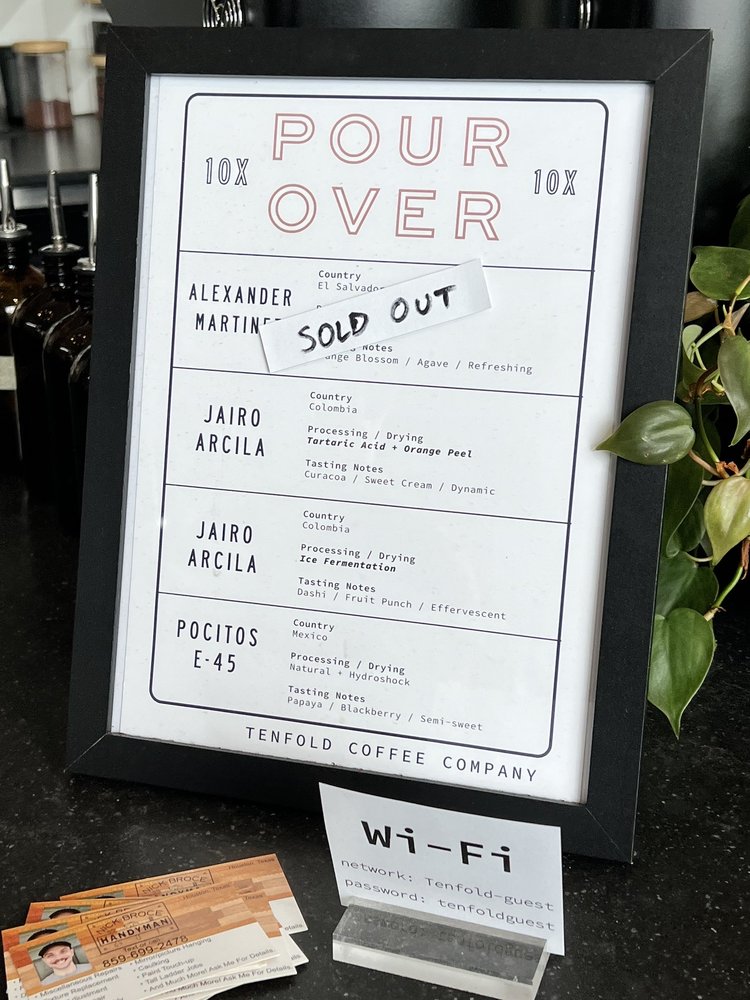 POUR
10X 10X
OVER
ALEXANDER
Country
El Salvador
SOLD OUT
Notes
Blossom / Agave / Refreshing
JAIRO
ARCILA
Country
Colombia
Processing / Drying
Tartaric Acid + Orange Peel
Tasting Notes
Curacoa / Sweet Cream / Dynamic
JAIRO
ARCILA
Country
Colombia
Processing / Drying
Ice Fermentation
Tasting Notes
Dashi / Fruit Punch / Effervescent
POCITOS
E-45
Country
Mexico
Processing / Drying
Natural + Hydroshock
Tasting Notes
Papaya / Blackberry / Semi-sweet
TENFOLD COFFEE COMPANY
Wi-Fi
network: Tenfold-guest
password: tenfoldguest
Houston, Texas
NICK BROCE
HANDYMAN
Text or call
859-699-2478
Miscellaneous Repairs
Replacement
Mirror/picture Hanging
Caulking
Paint Touch-up
Tall Ladder Jobs
And Much More! Ask Me For Details.